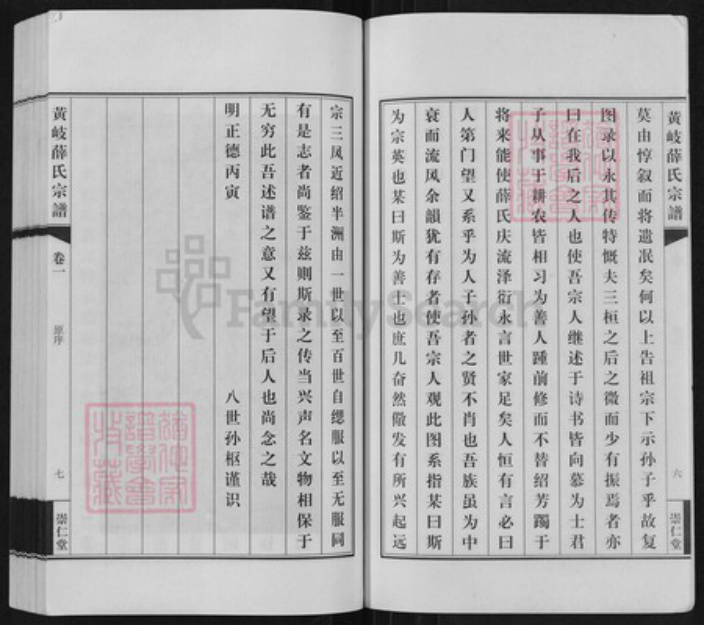 黄岐薛氏宗譜
六
崇仁堂
莫由惇叙而将遗泯矣何以上告祖宗下示孙子乎故复
图录以永其传特慨夫三桓之后之微而少有振焉者亦
曰在我后之人也使吾宗人继述于诗书皆向慕为士君
子从事于耕农皆相习为善人踵前修而不替绍芳躅于
将来能使薛氏庆流泽衍永言世家足矣人恒有言必曰
人第门望又系乎为人子孙者之贤不肖也吾族虽为中
衰而流风余韻犹有存者使吾宗人观此图系指某曰斯
为宗英也某曰斯为善士也庶几奋然儆发有所兴起远
宗三凤近绍半洲由一世以至百世自缌服以至无服同
有是志者尚鉴于兹则斯录之传当兴声名文物相保于
无穷此吾述谱之意又有望于后人也尚念之哉
明正德丙寅
八世孙枢谨识
黄岐薛氏宗譜
卷一
原序
七
崇仁堂
FamilySearch